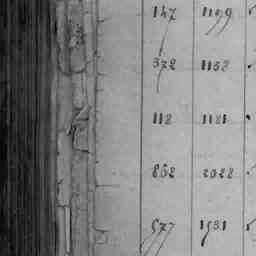 147 1199
372 1152
112 1121
862 2022
577 1931